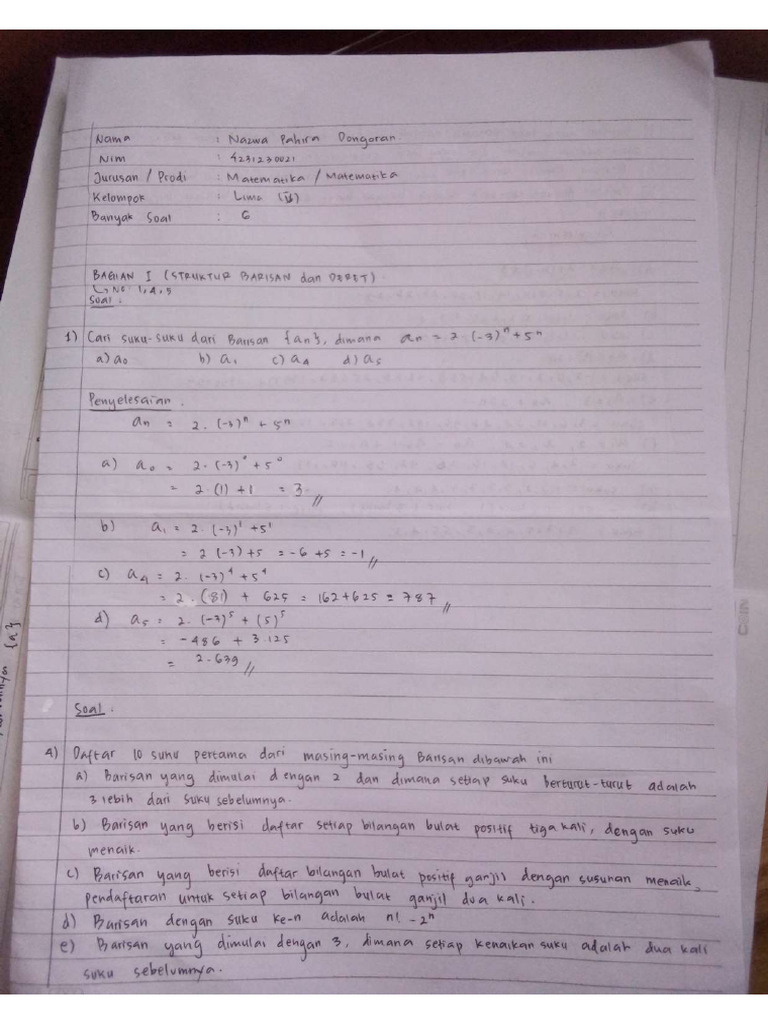 Nama : Nazwa Pahira Dongoran
Nim : 4231230021
Jurusan / Prodi : Matematika / Matematika
Kelompok : Lima (V)
Banyak Soal : 6
BAGIAN I (STRUKTUR BARISAN dan DERET)
↳ No: 1,4,5
Soal :
1) Cari suku-suku dari Barisan {an}, dimana an = 2 (-3)ⁿ + 5ⁿ
a) a₀ b) a₁ c) a₄ d) a₅
Penyelesaian .
an = 2 . (-3)ⁿ + 5ⁿ
a) a₀ = 2 . (-3)⁰ + 5⁰
= 2 . (1) + 1 = 3 //
b) a₁ = 2 . (-3)¹ + 5¹
= 2 (-3) + 5 = -6 + 5 = -1 //
c) a₄ = 2 . (-3)⁴ + 5⁴
= 2 . (81) + 625 = 162 + 625 = 787 //
d) a₅ = 2 . (-3)⁵ + (5)⁵
= -486 + 3.125
= 2.639 //
Soal :
4) Daftar 10 suku pertama dari masing-masing Barisan dibawah ini
a) Barisan yang dimulai dengan 2 dan dimana setiap suku berturut-turut adalah
3 lebih dari suku sebelumnya.
b) Barisan yang berisi daftar setiap bilangan bulat positif tiga kali, dengan suku
menaik.
c) Barisan yang berisi daftar bilangan bulat positif ganjil dengan susunan menaik,
pendaftaran untuk setiap bilangan bulat ganjil dua kali.
d) Barisan dengan suku ke-n adalah n! - 2ⁿ
e) Barisan yang dimulai dengan 3, dimana setiap kenaikan suku adalah dua kali
suku sebelumnya.